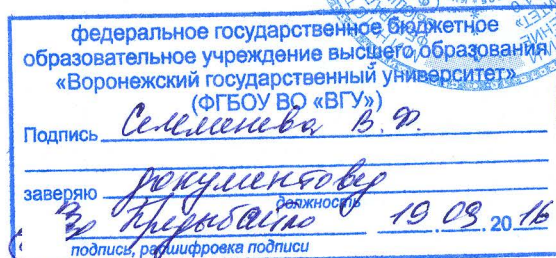 федеральное государственное бюджетное
образовательное учреждение высшего образования
«Воронежский государственный университет»
(ФГБОУ ВО «ВГУ»)
Подпись Селеменева В. Ф.
заверяю документовед
должность
19.09.2016
подпись, расшифровка подписи